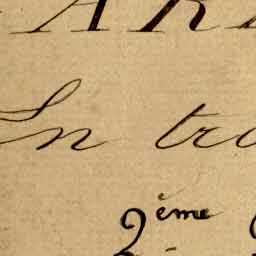 AR
En tro
2ème